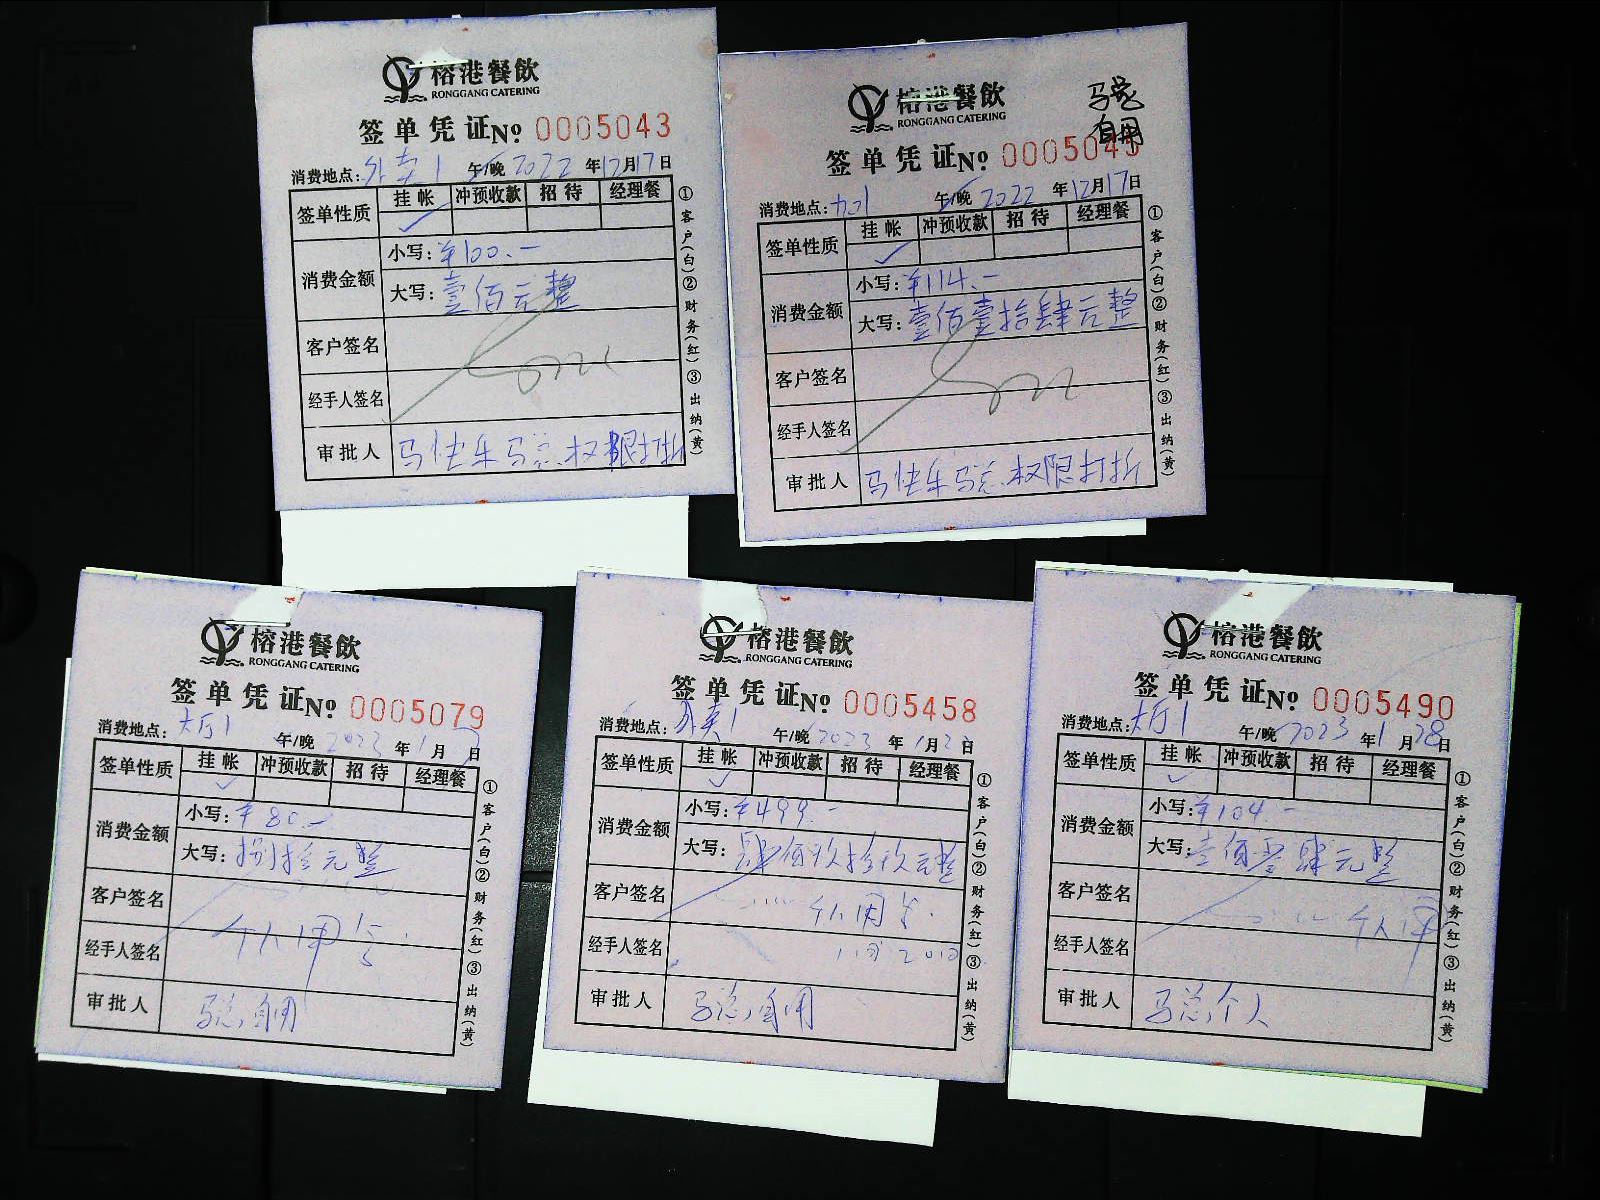 榕港餐飲
RONGGANG CATERING
签单凭证№ 0005043
消费地点:外卖1 午/晚 2022年12月17日
签单性质 挂帐 冲预收款 招待 经理餐
✓
消费金额 小写:¥100.-
大写:壹佰元整
客户签名
经手人签名
审批人 马快乐马总.权限打折
①客户(白)②财务(红)③出纳(黄)
榕港餐飲
RONGGANG CATERING
马总
自用
签单凭证№ 0005045
消费地点: 午/晚 2022年12月17日
签单性质 挂帐 冲预收款 招待 经理餐
✓
消费金额 小写:¥114.-
大写:壹佰壹拾肆元整
客户签名
经手人签名
审批人 马快乐马总.权限打折
①客户(白)②财务(红)③出纳(黄)
榕港餐飲
RONGGANG CATERING
签单凭证№ 0005079
消费地点:大厅1 午/晚 2023年1月 日
签单性质 挂帐 冲预收款 招待 经理餐
✓
消费金额 小写:¥80.-
大写:捌拾元整
客户签名
经手人签名 个人用
审批人 马总,自用
①客户(白)②财务(红)③出纳(黄)
榕港餐飲
RONGGANG CATERING
签单凭证№ 0005458
消费地点:外卖1 午/晚 2023年1月2 日
签单性质 挂帐 冲预收款 招待 经理餐
✓
消费金额 小写:¥499.-
大写:肆佰玖拾玖元整
客户签名 个人用
经手人签名
审批人 马总,自用
①客户(白)②财务(红)③出纳(黄)
榕港餐飲
RONGGANG CATERING
签单凭证№ 0005490
消费地点:大厅1 午/晚 2023年1月28日
签单性质 挂帐 冲预收款 招待 经理餐
✓
消费金额 小写:¥104.-
大写:壹佰零肆元整
客户签名 个人用
经手人签名
审批人 马总,个人
①客户(白)②财务(红)③出纳(黄)